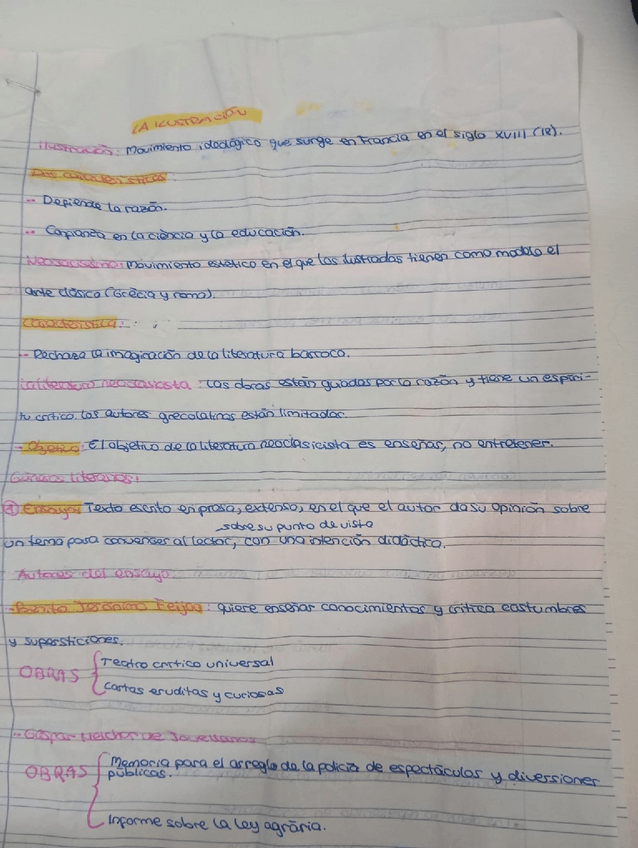 LA ILUSTRACIÓN
Ilustración: Movimiento ideológico que surge en Francia en el siglo XVIII (18).
características
-- Defiende la razón.
-- Confianza en la ciencia y la educación.
Neoclasicismo: Movimiento estético en el que los ilustrados tienen como modelo el
arte clásico (Grecia y roma).
Característica:
-- Rechaza la imaginación de la literatura barroca.
La literatura neoclasicista: Las obras están guiadas por la razón y tiene un espíri-
tu crítico. Los autores grecolatinos están limitados.
- Objetivo: El objetivo de la literatura neoclasicista es enseñar, no entretener.
Géneros literarios:
① Ensayo: Texto escrito en prosa, extenso, en el que el autor da su opinión sobre
sobre su punto de vista
un tema para convencer al lector, con una intención didáctica.
Autores del ensayo:
- Benito Jerónimo Feijoo: quiere enseñar conocimientos y critica costumbres
y supersticiones.
OBRAS { Teatro crítico universal
Cartas eruditas y curiosas
-- Gaspar Melchor de Jovellanos
OBRAS { Memoria para el arreglo de la policía de espectáculos y diversiones
públicas.
Informe sobre la ley agrária.